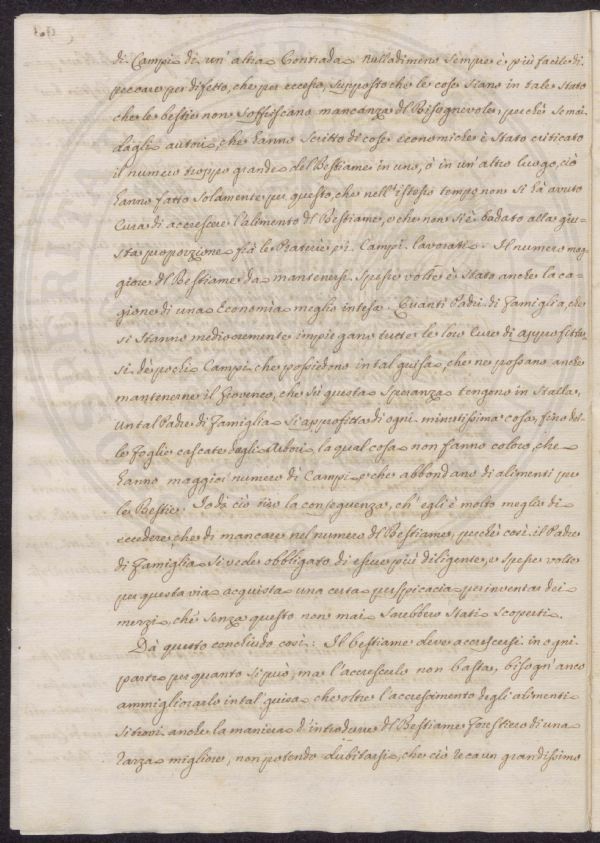 di Campi di un' altra Contrada nulladimeno sempre è più facile di
peccare per difetto, che per eccesso, supposto che le cose siano in tale stato
che le bestie non soffriscano mancanza del Bisognevole, perchè se mai
dagli autori, che hanno scritto di cose economiche è stato criticato
il numero troppo grande del Bestiame in uno, ò in un' altro luogo, ciò
hanno fatto solamente per questo, che nell' istesso tempo non si hà avuto
Cura di accrescere l'alimento del Bestiame, e che non si è badato alla giu=
sta proporzione frà le Praterie, e i Campi lavorati. Il numero mag
giore del Bestiame da mantenersi spesse volte è stato anche la ca
gione di una Economia meglio intesa. Quanti Padri di Famiglia, che
si stanno mediocremente impiegano tutte le loro Cure di approfittar
si dè pochi Campi, che possiedono in tal guisa, che ne possano anche
mantenerne il Giovenco, che sù questa Speranza tengono in Stalla,
un tal Padre di Famiglia si approfitta di ogni minutissima cosa, fino del
le Foglie cascate degli Arbori, la qual cosa non fanno coloro, che
hanno maggior numero di Campi, e che abbondano di alimenti per
le Bestie. Io dà ciò tiro la conseguenza, ch' egli è molto meglio di
eccedere, che di mancare nel numero del Bestiame, perchè così il Padre
di Famiglia si vede obbligato di essere più diligente, e spesse volte
per questa via acquista una certa perspicacia per inventar dei
mezzi, chè senza questo non mai sarebbero stati scoperti.
Dà questo concludo così: Il bestiame deve accrescersi in ogni
parte per quanto si può, ma l'accrescerlo non basta, bisogn' anco
ammigliorarlo in tal guisa che oltre l'accrescimento degli alimenti
si trovi anche la maniera d'introdurre del Bestiame Forestiero di una
razza migliore, non potendo dubitarsi, che ciò reca un grandissimo